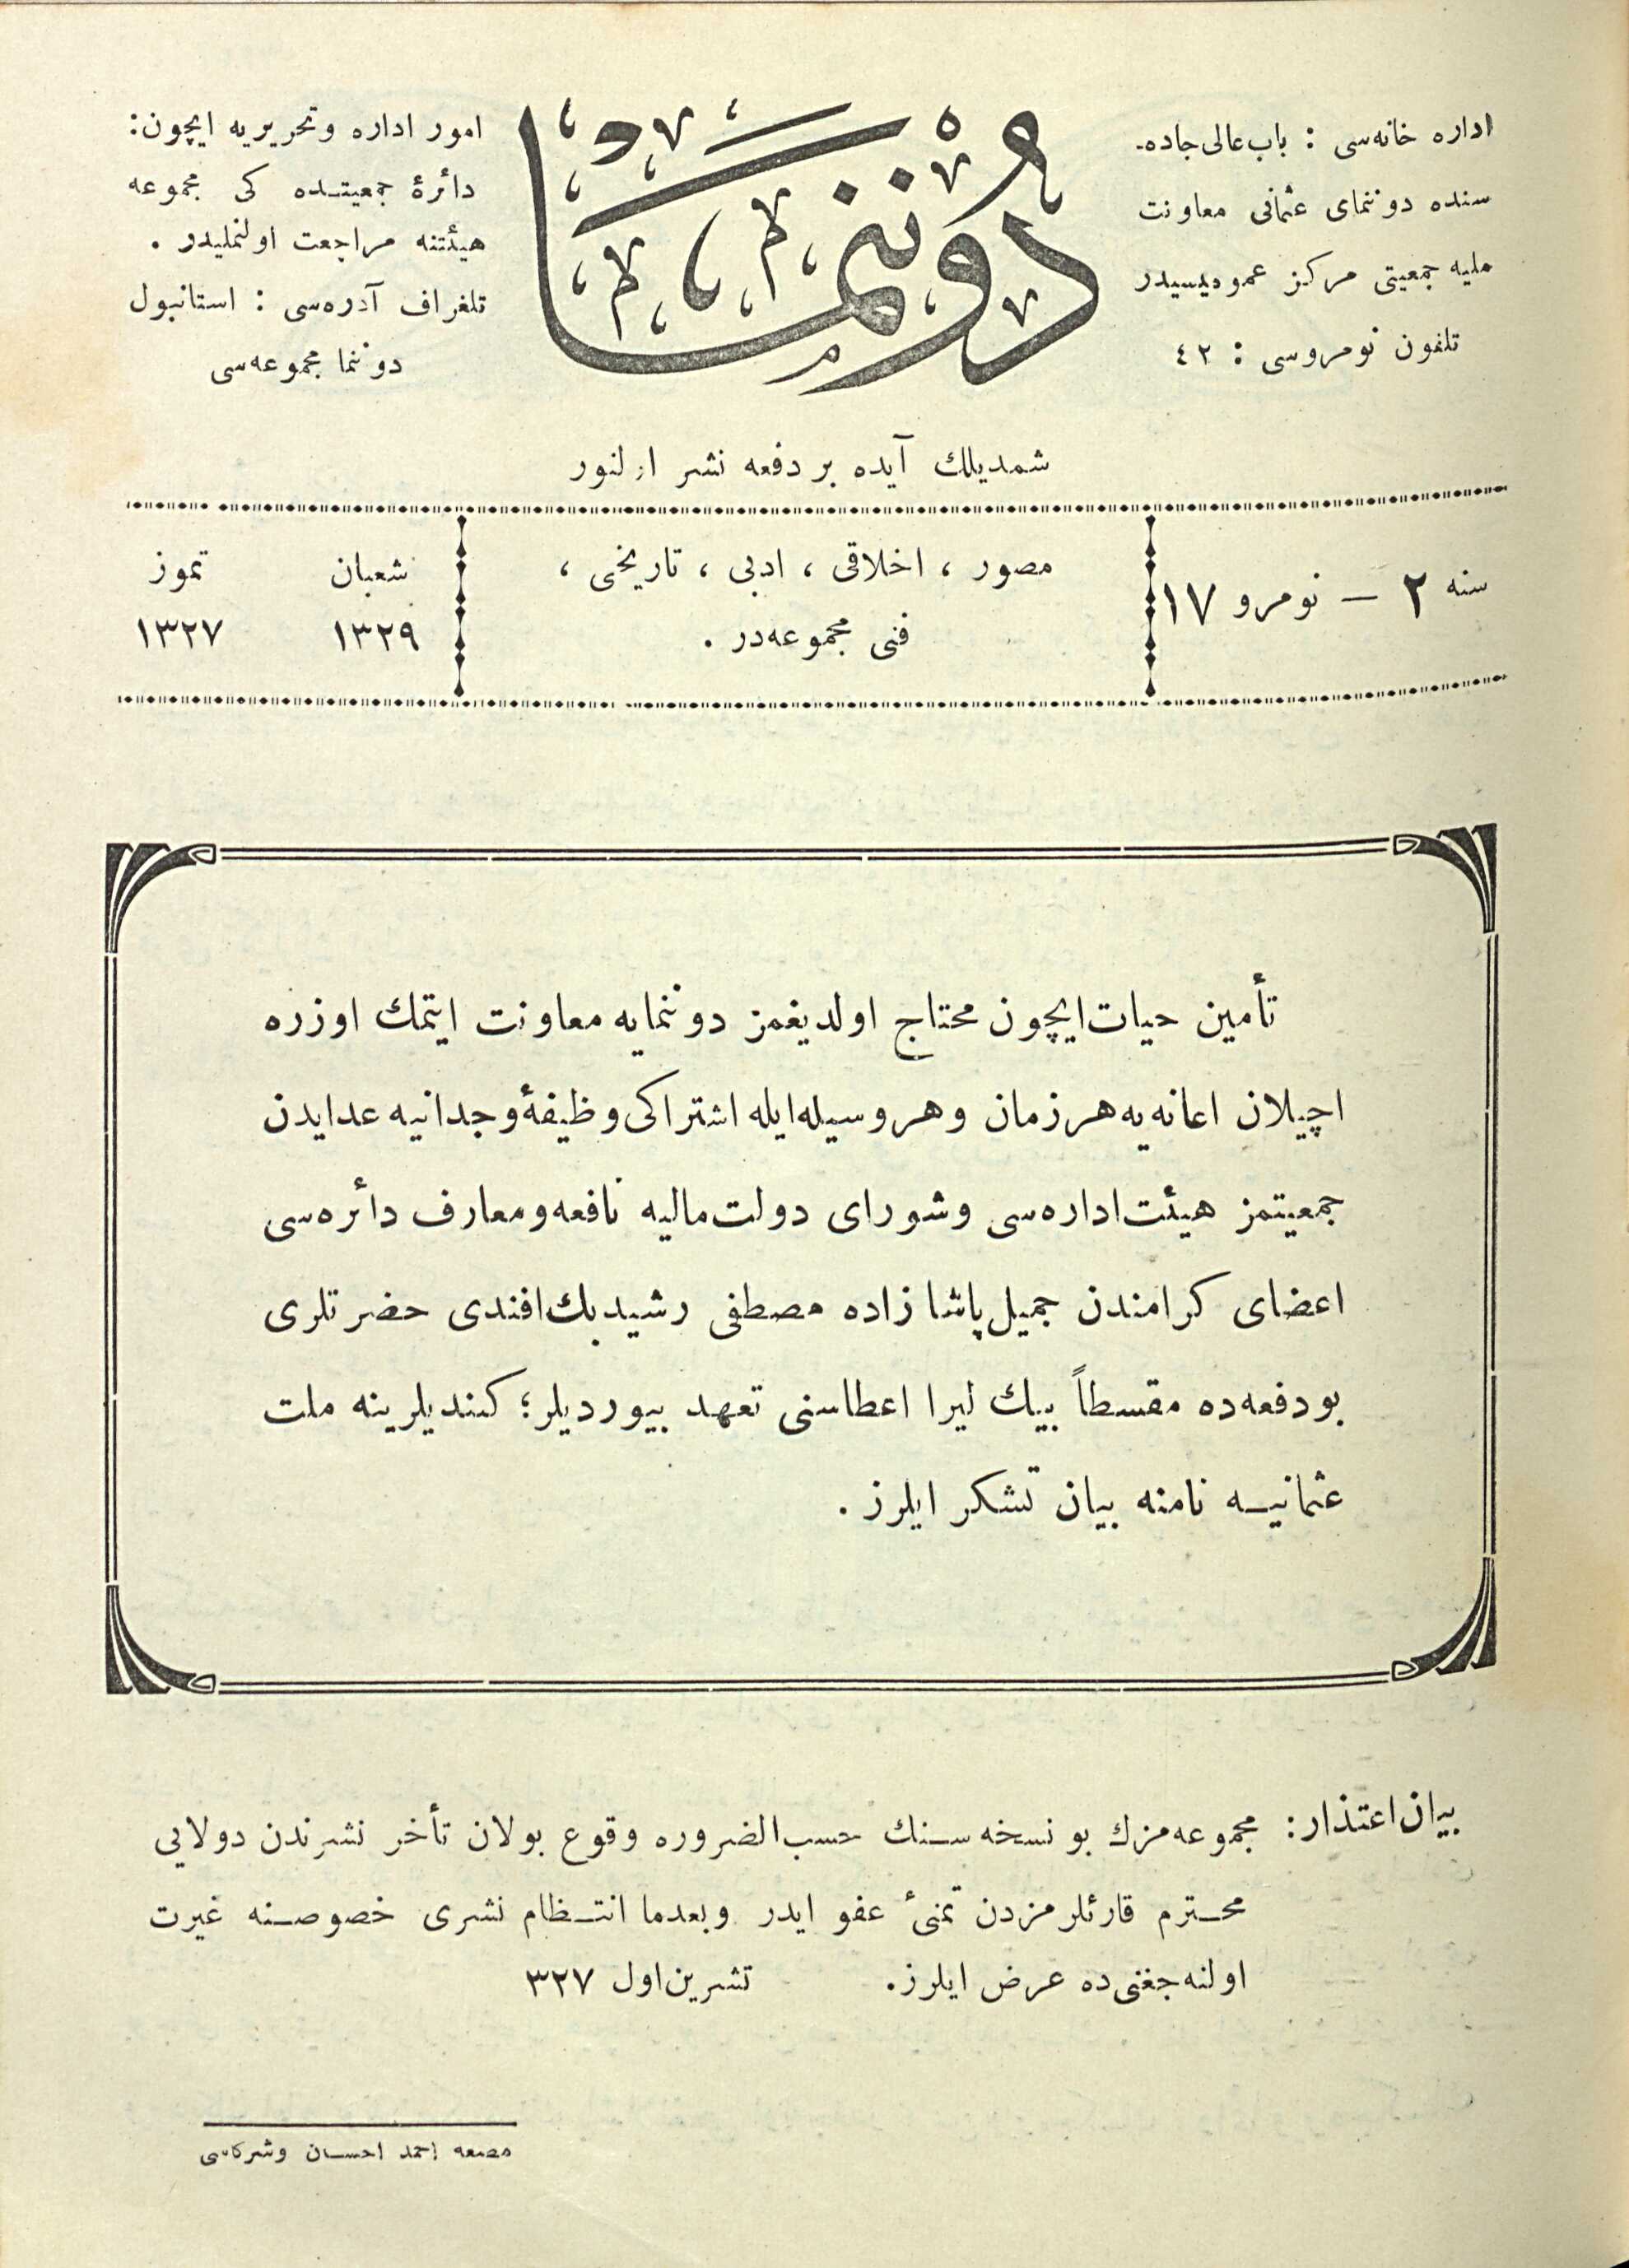 اداره خانه‌سی : باب‌عالی‌جاده‌-
سنده دوننمای عثمانی معاونت
ملیه جمعیتی مرکز عمومیسیدر
تلفون نومروسی : ٤٢
دوننما
امور اداره وتحریریه ایچون:
دائرهٔ جمعیتده کی مجموعه
هیئتنه مراجعت اولنملیدر .
تلغراف آدره‌سی : استانبول
دوننما مجموعه‌سی
شمدیلك آیده بر دفعه نشر اولنور
سنه ٢ — نومرو ١٧
مصور ، اخلاقی ، ادبی ، تاریخی ،
فنی مجموعه‌در .
شعبان
١٣٢٩
تموز
١٣٢٧
تأمین حیات ایچون محتاج اولدیغمز دوننمایه معاونت ایتمك اوزره
اچیلان اعانه‌یه هر زمان وهر وسیله ایله اشتراکی وظیفهٔ وجدانیه عد ایدن
جمعیتمز هیئت اداره‌سی وشورای دولت مالیه نافعه ومعارف دائره‌سی
اعضای کرامندن جمیل پاشا زاده مصطفی رشید بك افندی حضرتلری
بو دفعه‌ده مقسطاً بیك لیرا اعطاسنی تعهد بیوردیلر؛ کندیلرینه ملت
عثمانیه نامنه بیان تشکر ایلرز .
بیان اعتذار: مجموعه‌مزك بو نسخه‌سنك حسب‌الضروره وقوع بولان تأخر نشرندن دولایی
محترم قارئلرمزدن تمنیٔ عفو ایدر وبعدما انتظام نشری خصوصنه غیرت
اولنه‌جغنی‌ده عرض ایلرز. تشرین اول ٣٢٧
مطبعه احمد احسان وشرکاسی